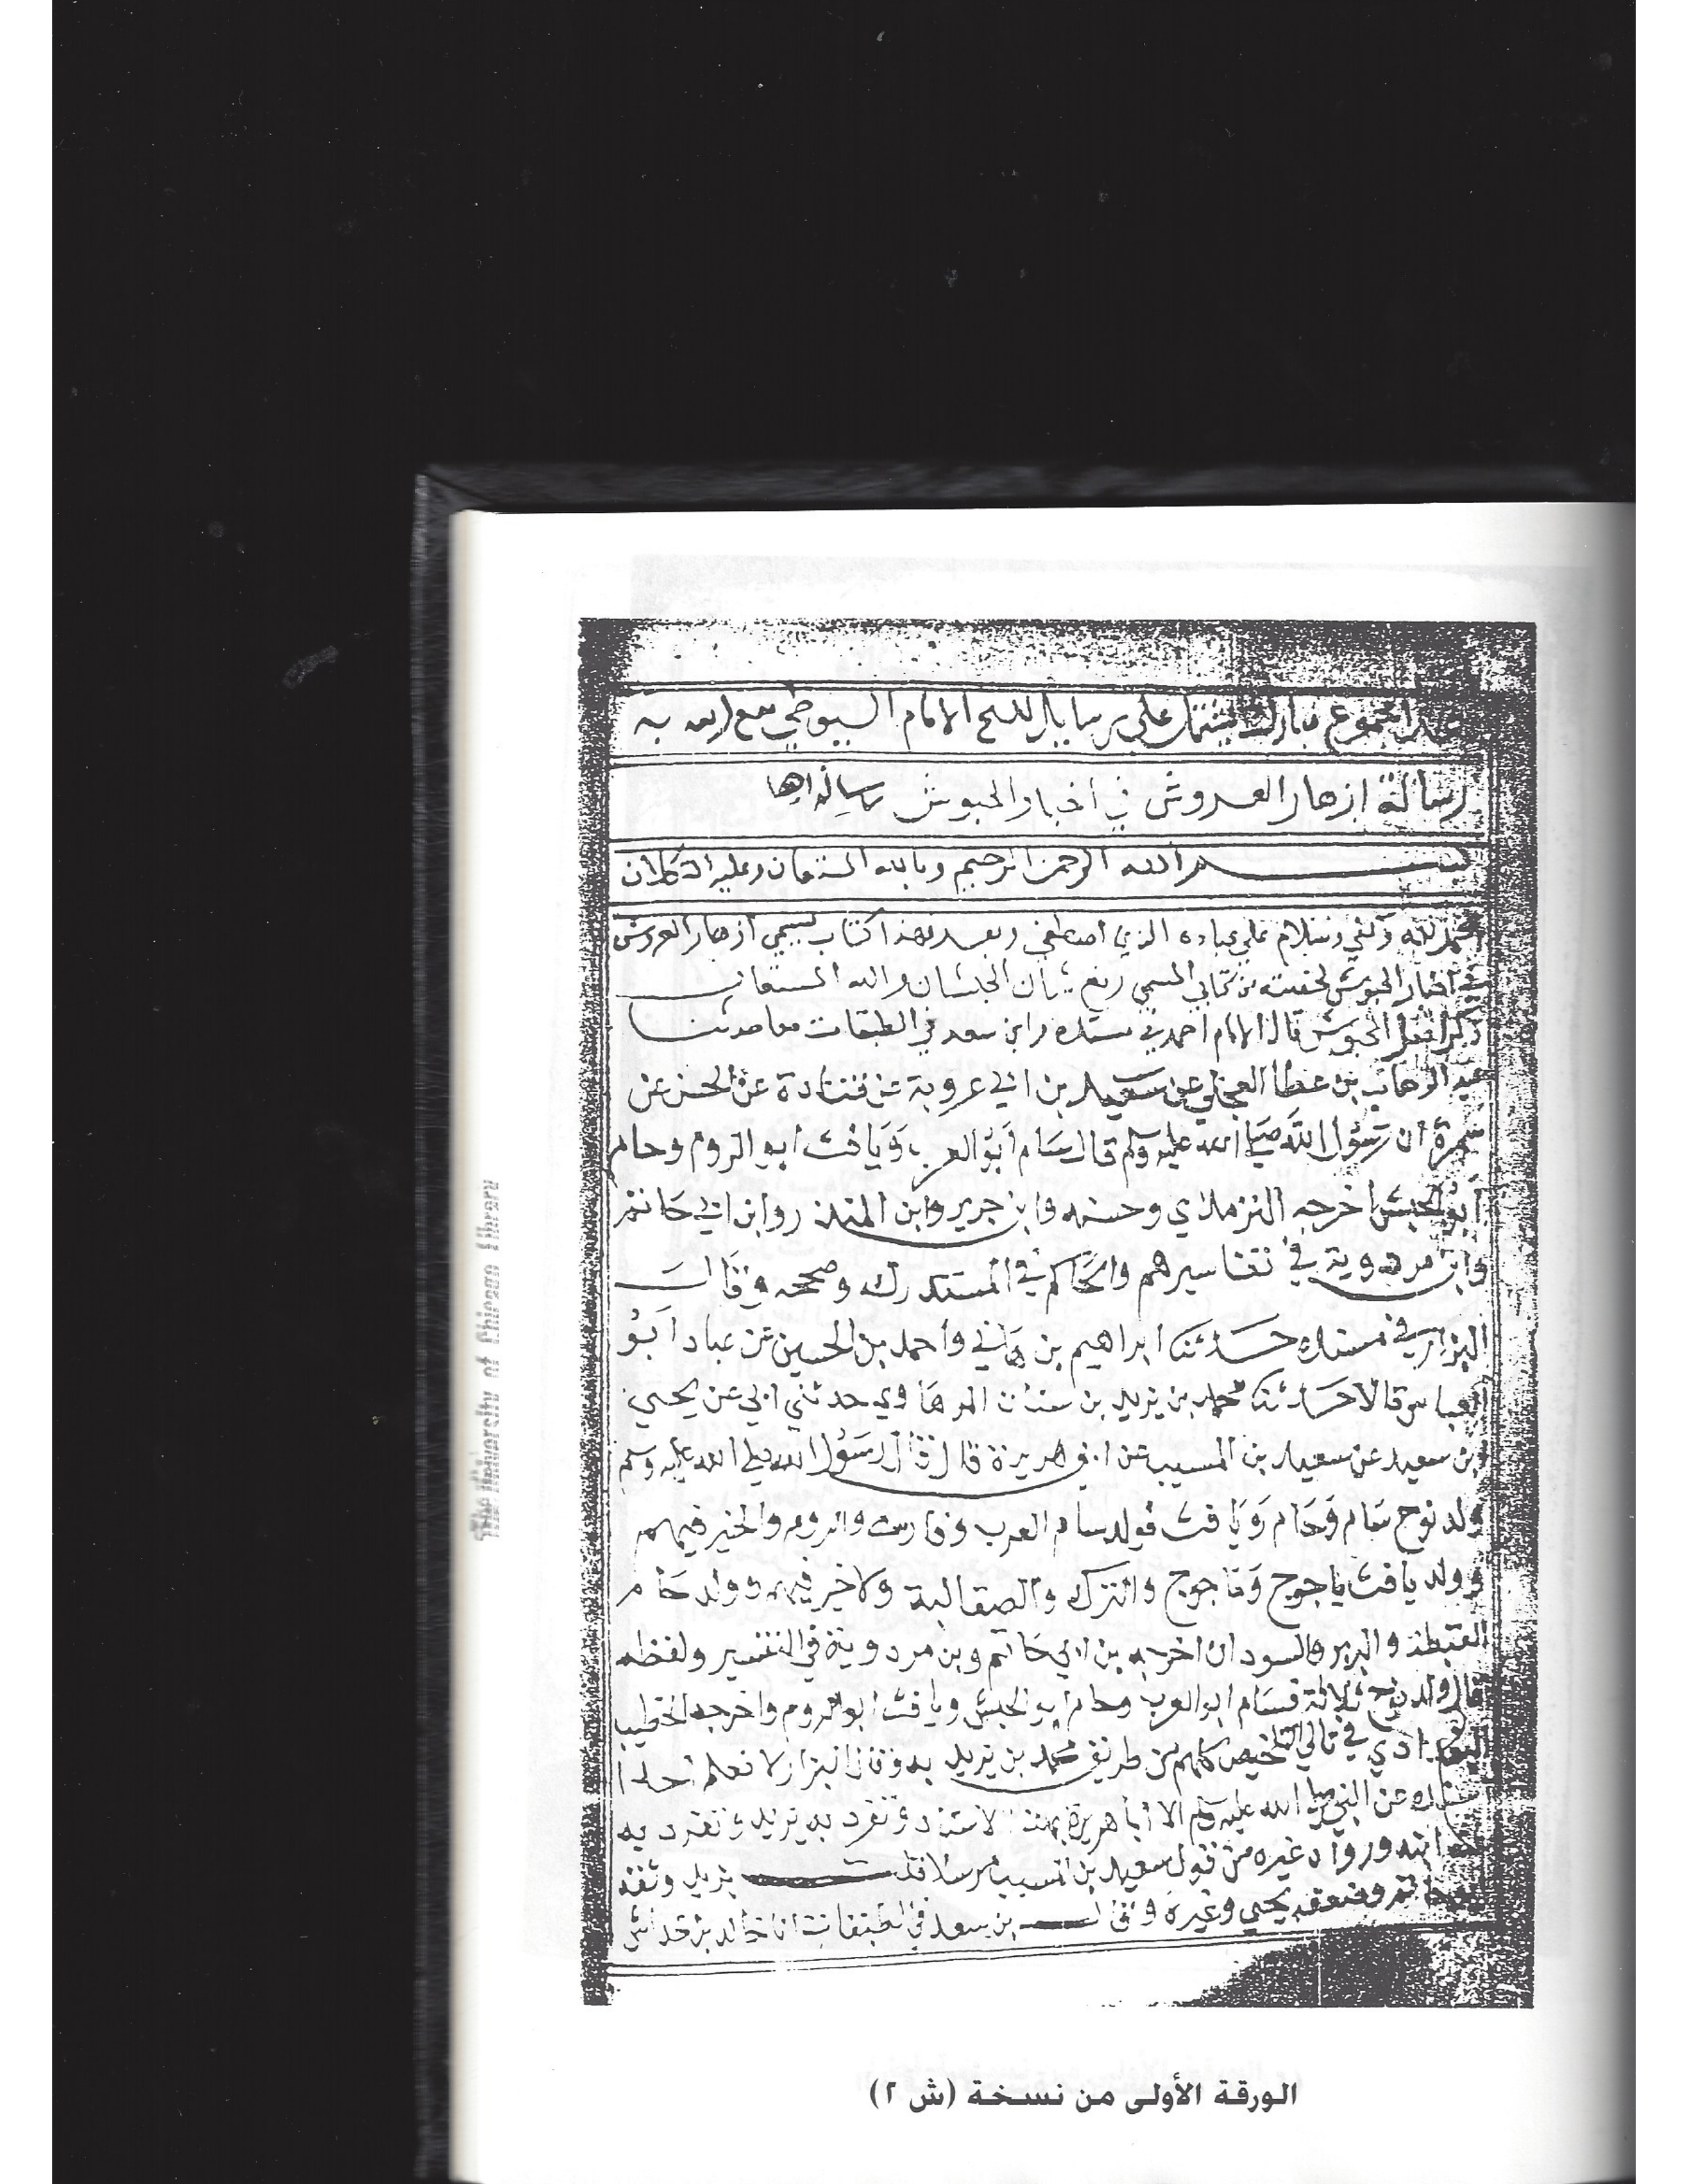 هذا مجموع مبارك يشتمل على رسايل للشيخ الامام السيوطي نفع الله به
رسالة ازهار العروش في اخبار الحبوش
بسم الله الرحمن الرحيم وبالله المستعان وعليه التكلان
الحمد لله وكفى وسلام علي عباده الذي اصطفى وبعد فهذا كتاب يسمي ازهار العروش
في اخبار الحبوش لخصته من كتابي المسمي رفع شان الحبشان والله المستعان
ذكر الحبوش قال الامام احمد في مسنده وابن سعد في الطبقات معا حدثنا
عبد الوهاب بن عطا العجلي عن سعيد بن ابي عروبة عن قتادة عن الحسن عن
سمرة ان رسول الله صلى الله عليه وسلم قال سام ابو العرب ويافث ابو الروم وحام
ابو الحبش اخرجه الترمذي وحسنه وابن جرير وابن المنذر وابن ابي حاتم
وابن مردوية في تفاسيرهم والحاكم في المستدرك وصححه وقال
البزار في مسنده حدثنا ابراهيم بن هاني واحمد بن الحسين بن عباد ابو
العباس قالا حدثنا محمد بن يزيد بن سنان الرهاوي حدثني ابي عن يحيى
بن سعيد عن سعيد بن المسيب عن ابي هريرة قال قال رسول الله صلى الله عليه وسلم
ولد نوح سام وحام ويافث فولد سام العرب وفارس والروم والخير فيهم
وولد يافث ياجوج وماجوج والترك والصقالبة ولا خير فيهم وولد حام
القبط والبربر والسودان اخرجه بن ابي حاتم وبن مردوية في التفسير ولفظه
قال ولد نوح ثلاثة فسام ابو العرب وحام ابو الحبش ويافث ابو الروم واخرجه الخطيب
البغدادي في تالي التلخيص كلهم من طريق محمد بن يزيد به وقال البزار لا نعلم احدا
اسنده عن النبي صلى الله عليه وسلم الا ابا هريرة بهذا الاسناد وتفرد به يزيد وتفرد به
ابنه ورواه غيره من قول سعيد بن المسيب مرسلا قلت يزيد وثقه
ابو حاتم وضعفه يحيي وغيره وقال بن سعد في الطبقات انا خالد بن خداش
الورقة الأولى من نسخة (ش ٢)
The University of Chicago Library